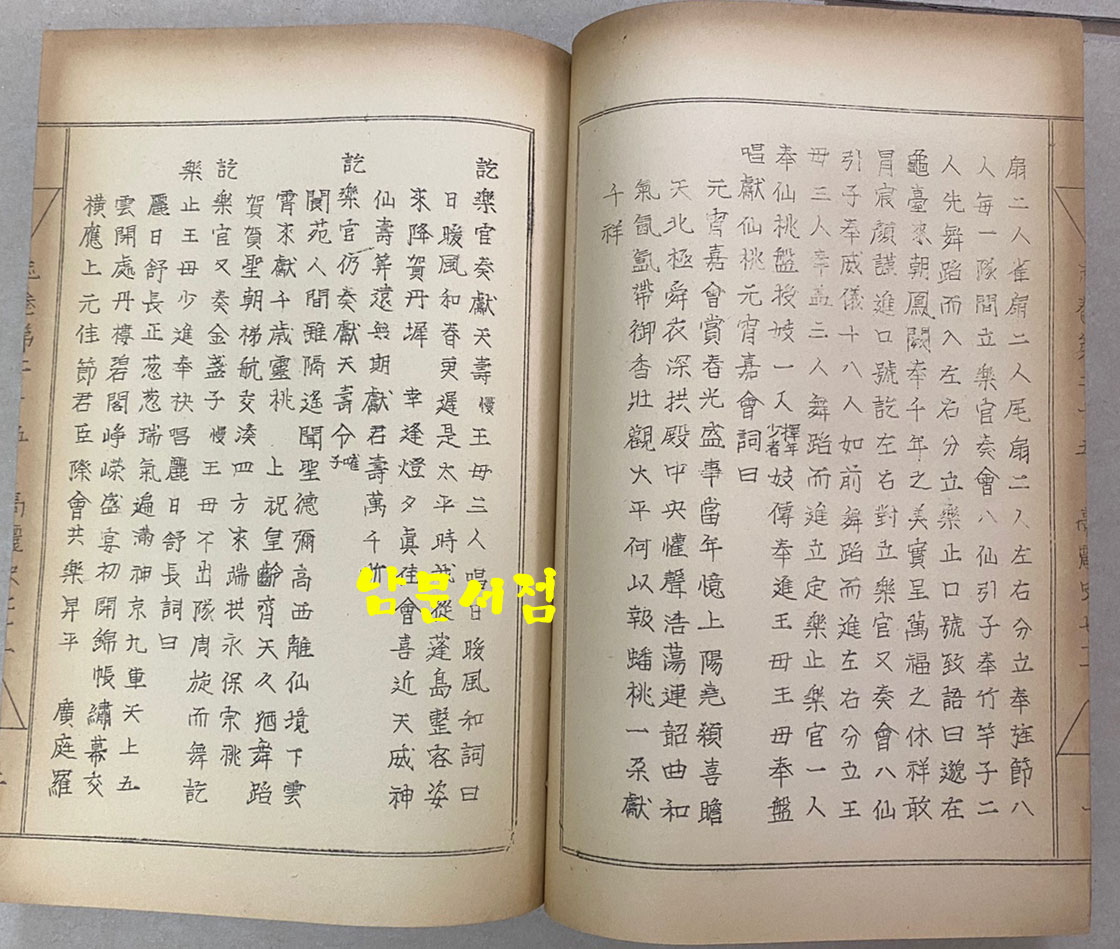 扇二人雀扇二人尾扇二人左右分立奉旌節八
人每一隊間立樂官奏會八仙引子奉竹竿子二
人先舞蹈而入左右分立樂止口號致語曰邈在
龜臺來朝鳳闕奉千年之美實呈萬福之休祥敢
冒宸顔謹進口號訖左右對立樂官又奏會八仙
引子奉威儀十八人如前舞蹈而進左右分立王
母三人奉盖三人舞蹈而進立定樂止樂官一人
奉仙桃盤授妓一人擇年少者妓傳奉進王母王母奉盤
唱獻仙桃元宵嘉會詞曰
元宵嘉會賞春光盛事當年憶上陽堯顙喜瞻
天北極舜衣深拱殿中央懽聲浩蕩連韶曲和
氣氤氳帶御香壯觀大平何以報蟠桃一朶獻
千祥
訖樂官奏獻天壽慢王母三人唱日暖風和詞曰
日暖風和春更遲是太平時我從蓬島整容姿
來降賀丹墀 幸逢燈夕眞佳會喜近天威神
仙壽筭遠無期獻君壽萬千斯
訖樂官仍奏獻天壽令嗺子
閬苑人間雖隔遙聞聖德彌高西離仙境下雲
霄來獻千歲靈桃 上祝皇齡齊天久猶舞蹈
賀賀聖朝梯航交湊四方來端拱永保宗祧
訖樂官又奏金盞子慢王母不出隊周旋而舞訖
樂止王母少進奉袂唱麗日舒長詞曰
麗日舒長正葱葱瑞氣遍滿神京九重天上五
雲開處丹樓碧閣崢嶸盛宴初開錦帳繡幕交
橫應上元佳節君臣際會共樂昇平 廣庭羅
남문서점